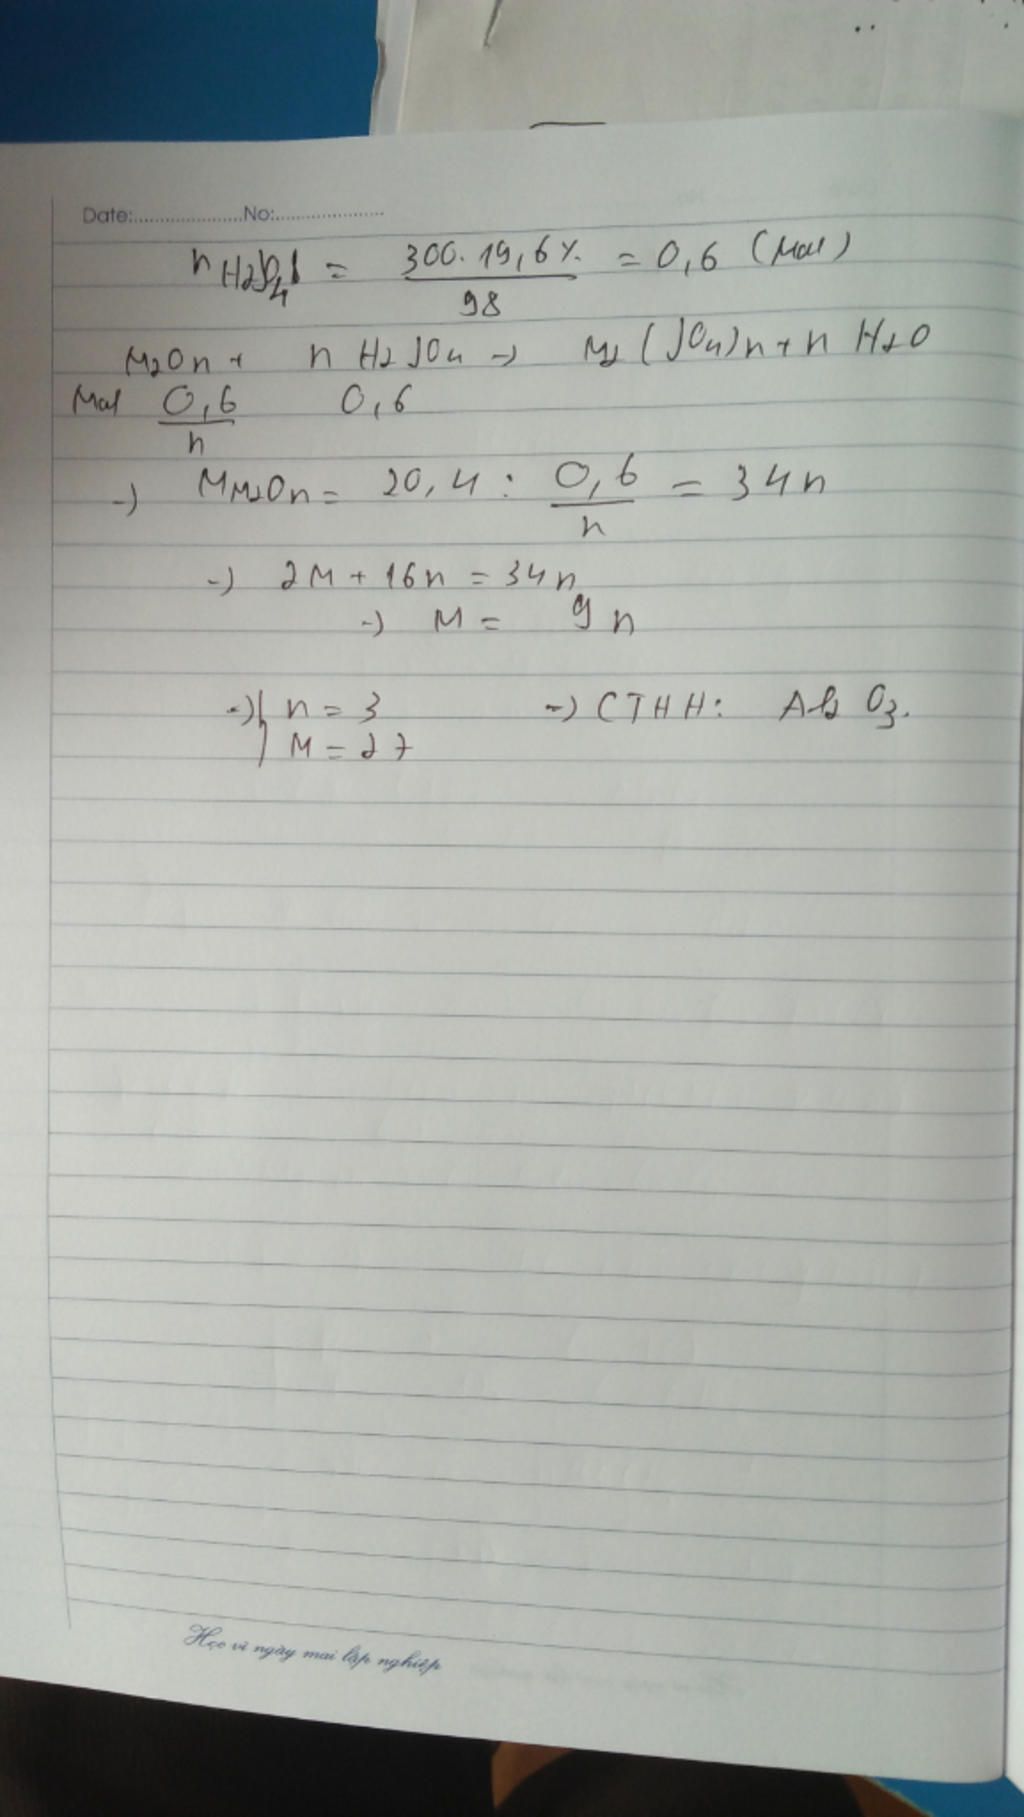 Date:......................No:......................
nH2SO4 = 300.19,6% / 98 = 0,6 (Mol)
M2On + n H2SO4 -> M2(SO4)n + n H2O
Mol 0,6/n 0,6
-> MM2On = 20,4 : 0,6/n = 34n
-> 2M + 16n = 34n
-> M = 9n
-> { n = 3 -> CTHH: Al2O3.
M = 27
Học vì ngày mai lập nghiệp